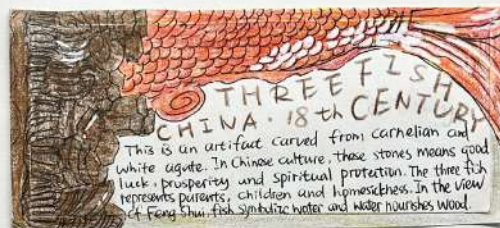 THREE FISH
CHINA · 18th CENTURY
This is an artifact carved from carnelian and
white agate. In Chinese culture, these stones means good
luck, prosperity and spiritual protection. The three fish
represents parents, children and homesickness. In the view
of Feng Shui, fish symbolize water and water nourishes wood.